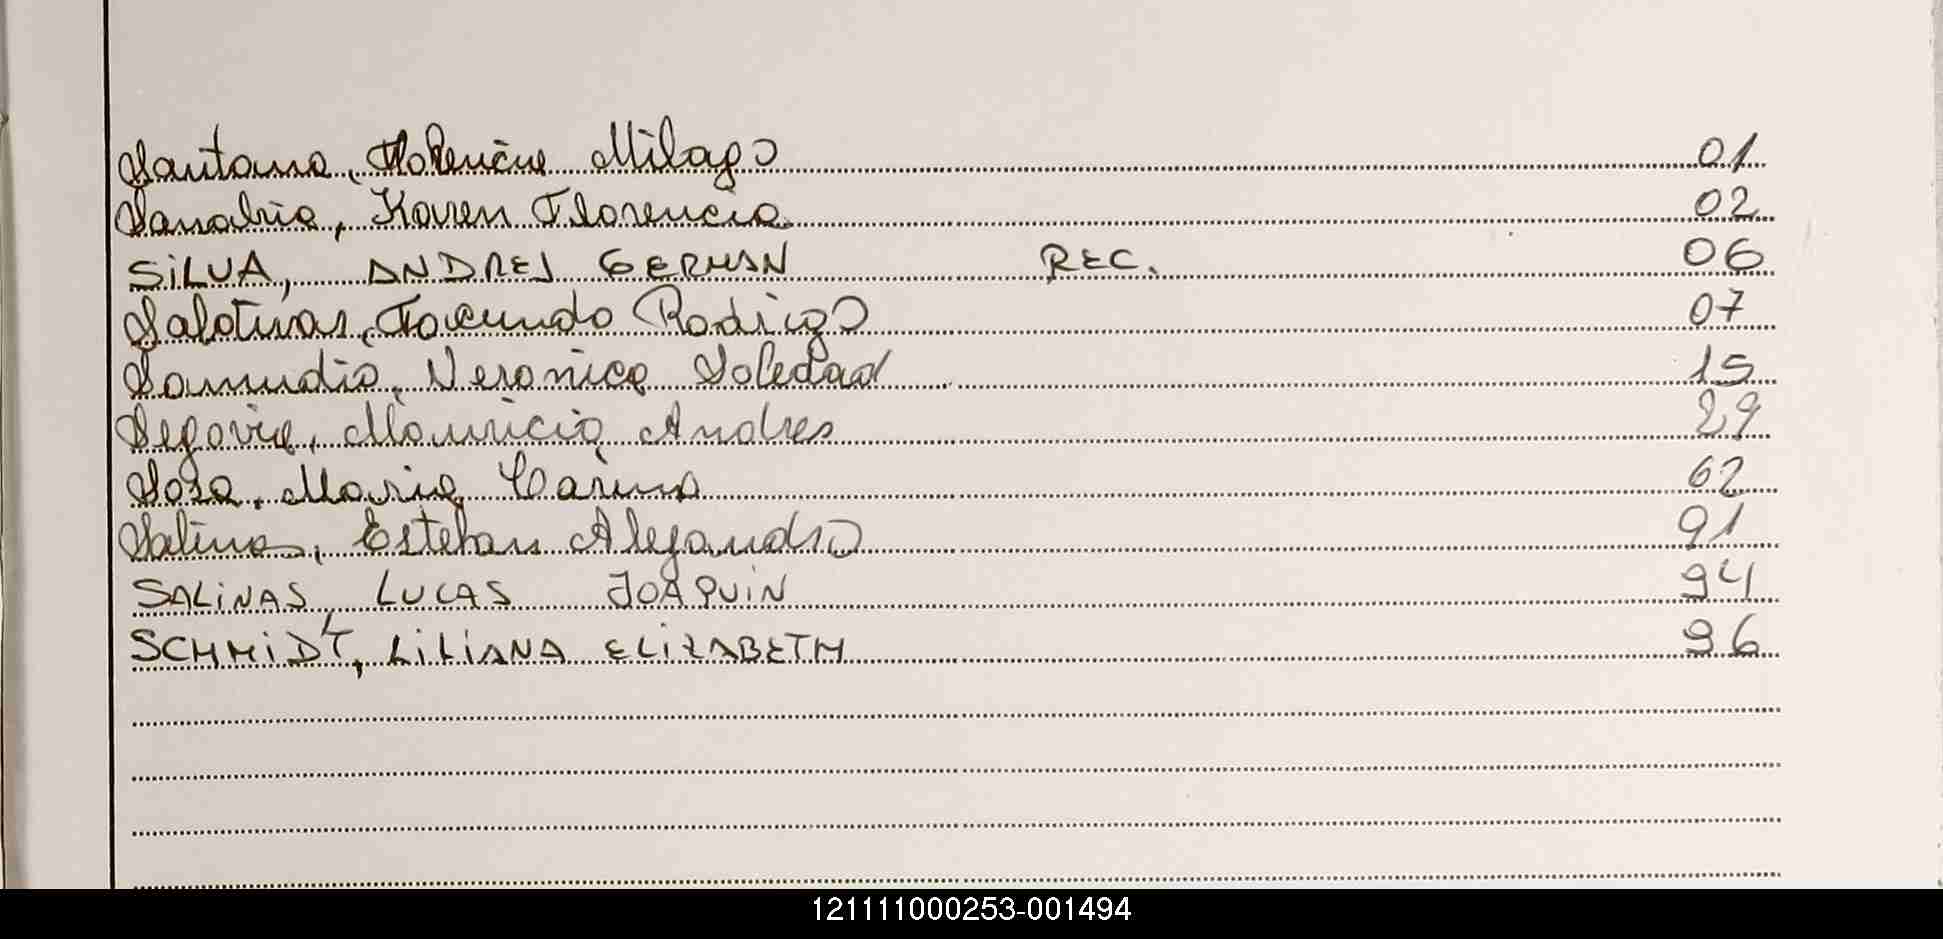 Santana, Florencia Milago 01
Sanabria, Karen Florencia 02
SILVA, ANDRES GERMAN REC. 06
Facundo Rodrigo 07
Samudio, Veronica Soledad 15
Segovia, Mauricio Andres 29
Sosa, Maria Carina 62
Salinas, Esteban Alejandro 91
SALINAS, LUCAS JOAQUIN 94
SCHMIDT, LILIANA ELIZABETH 96
121111000253-001494